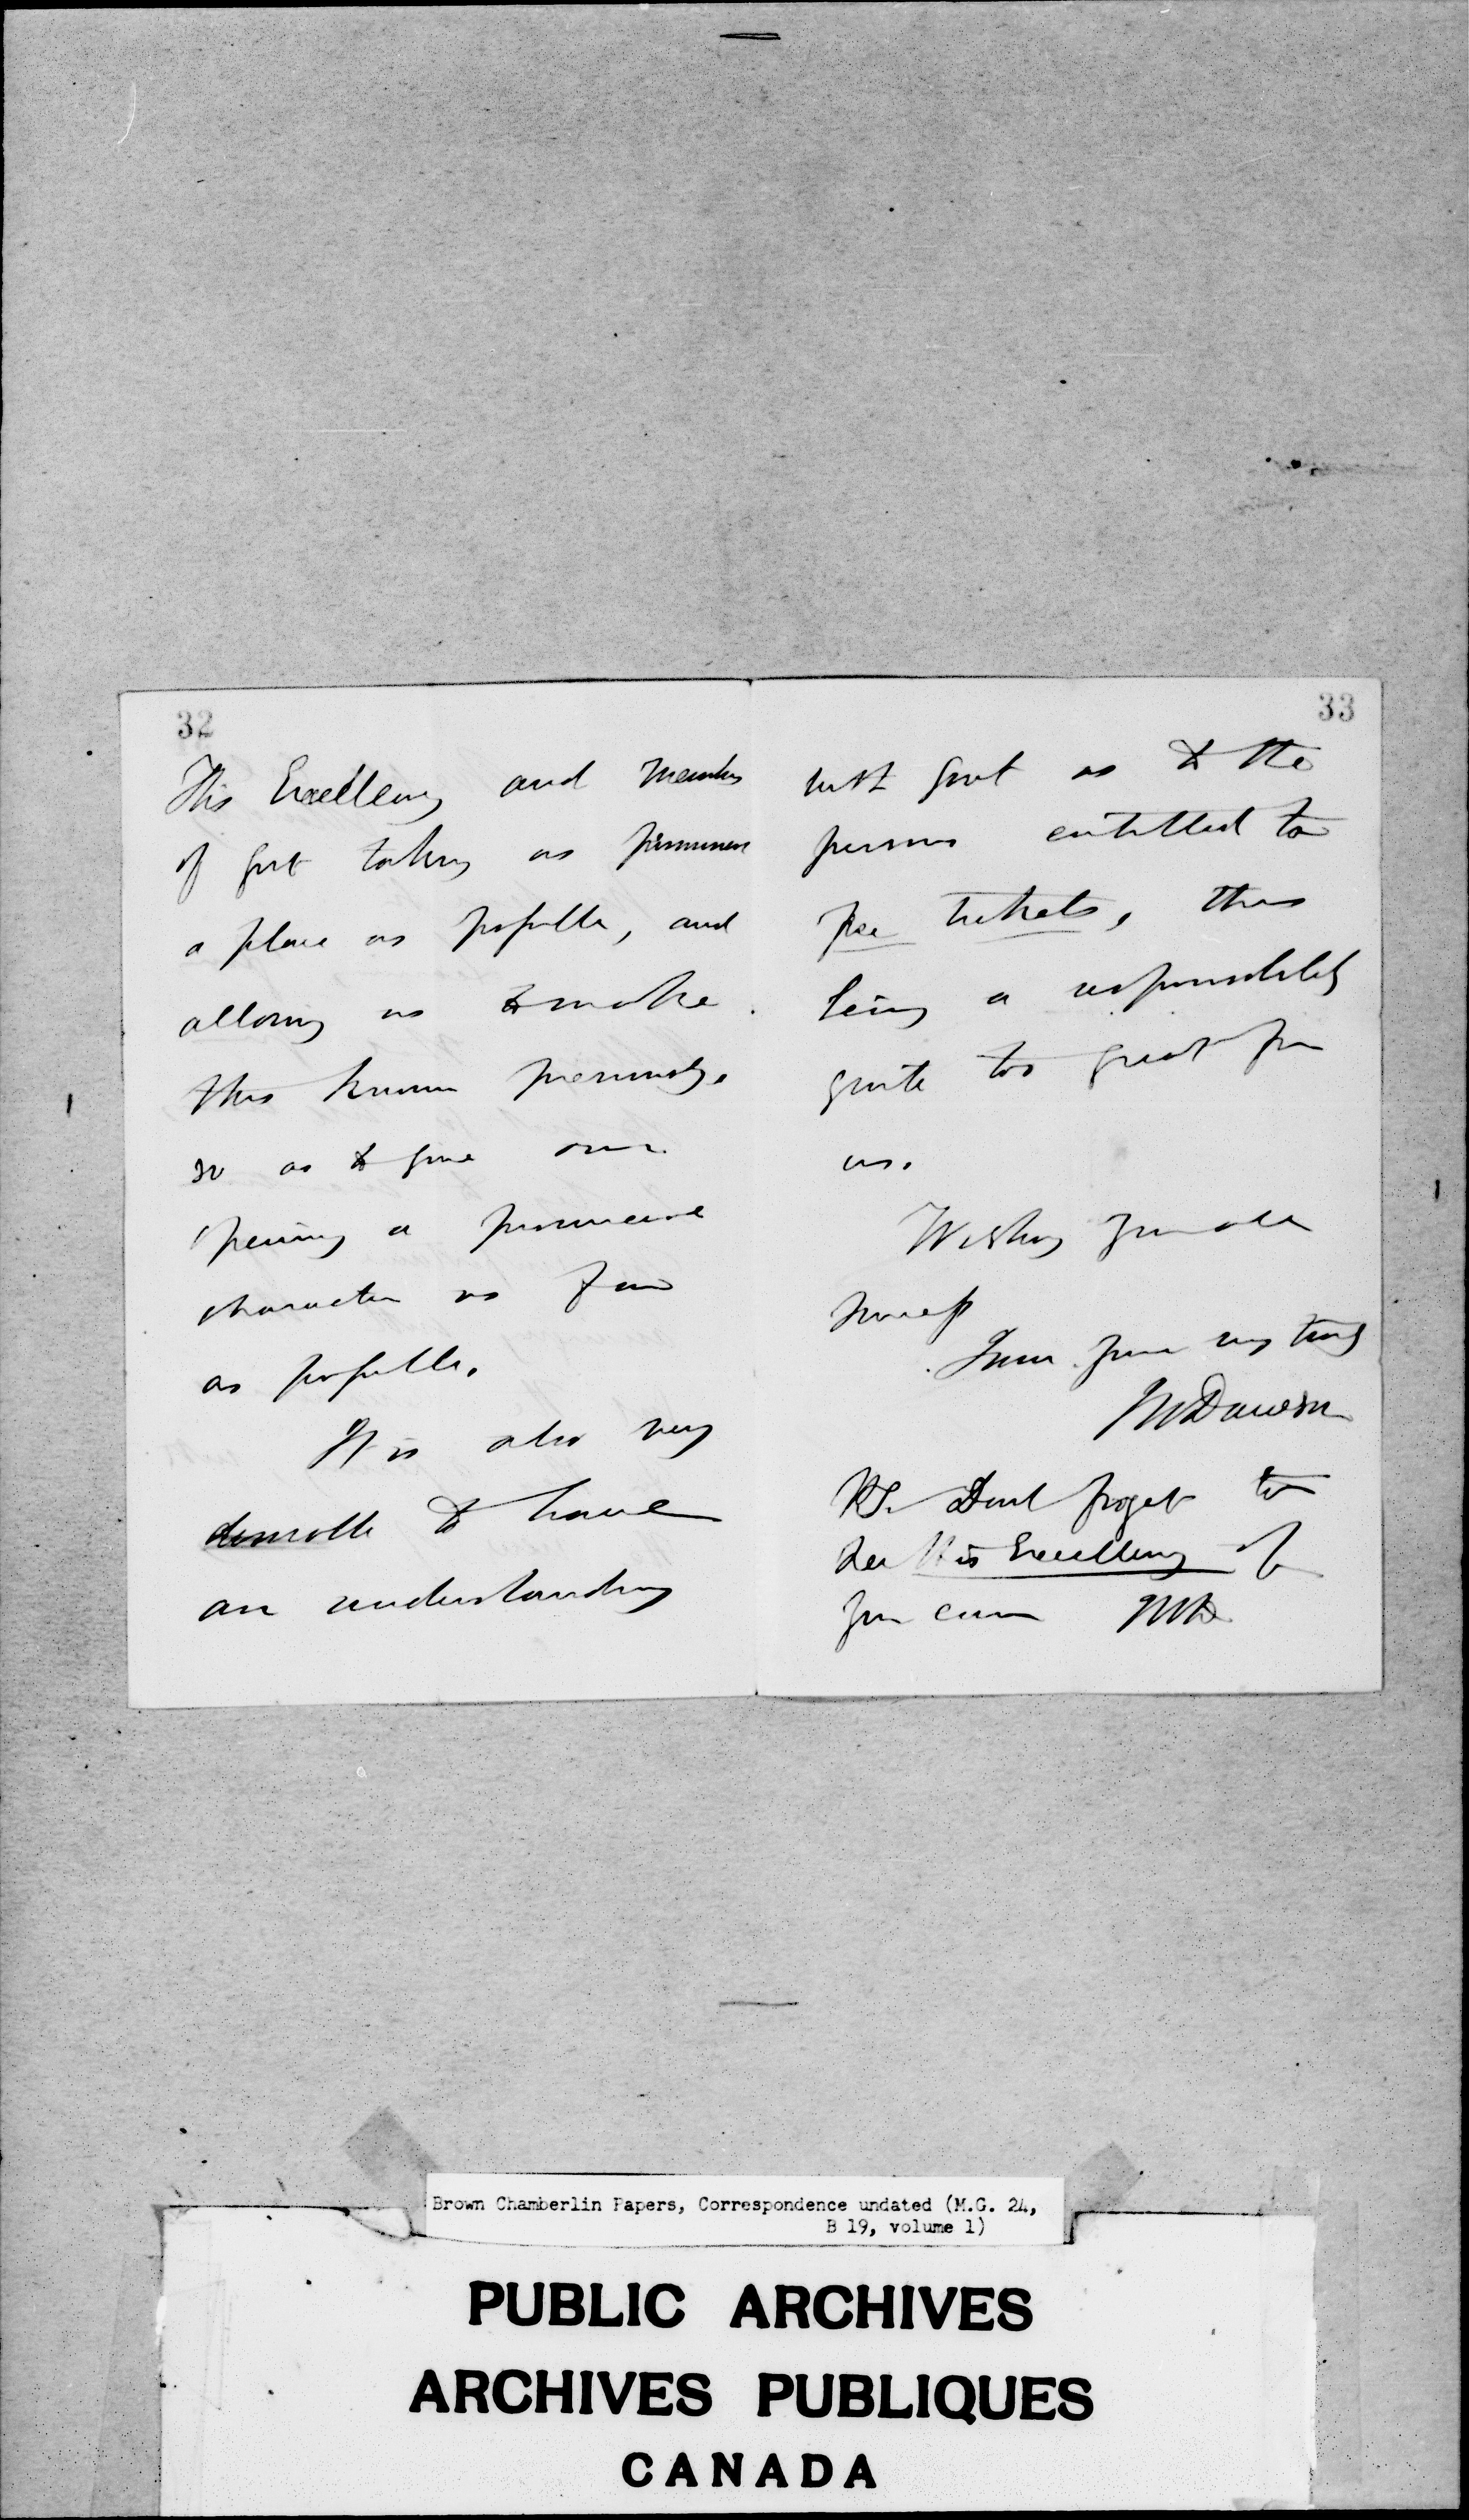 32
His Excellency and members
of govt taking as prominent
a place as possible, and
allowing us to make
this known previously.
so as to give our
opening a prominent
character as far
as possible.
It is also very
desirable to have
an understanding
33
with govt as to the
persons entitled to
free tickets, this
being a responsibility
quite too great for
us.
Wishing you all
success
I am yours very truly
JWDawson
P.S. Dont forget to
see His Excellency if
you can JWD
Brown Chamberlin Papers, Correspondence undated (M.G. 24,
B 19, volume 1)
PUBLIC ARCHIVES
ARCHIVES PUBLIQUES
CANADA